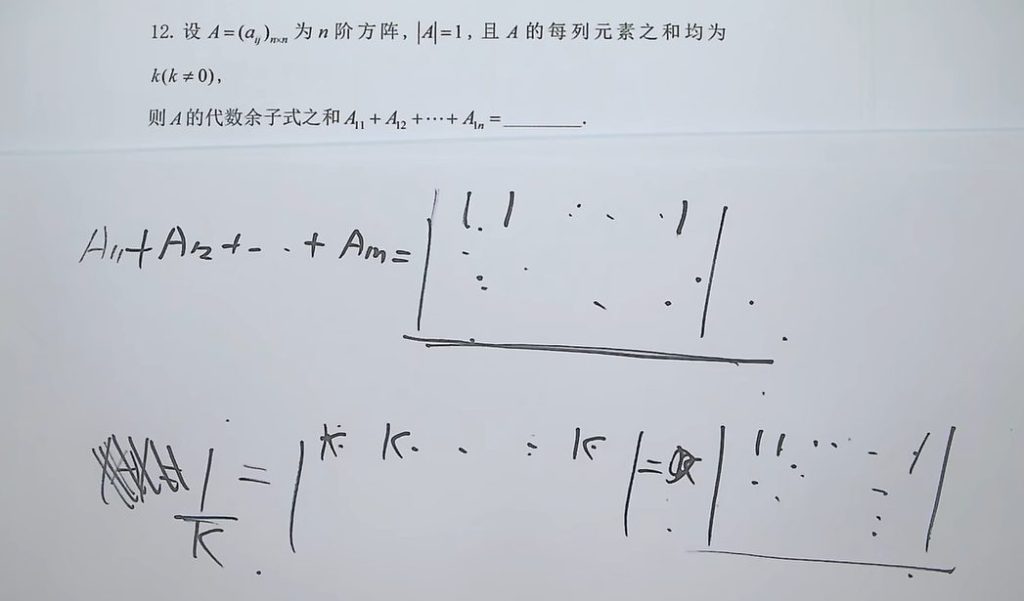 12. 设 A=(a_{ij})_{n×n} 为 n 阶方阵, |A|=1, 且 A 的每列元素之和均为
k(k≠0),
则 A 的代数余子式之和 A_{11}+A_{12}+⋯+A_{1n}=________.
A_{11}+A_{12}+⋯+A_{1n}=|1 1 ⋯ 1|
1/k = |k k ⋯ k| = |1 1 ⋯ 1|